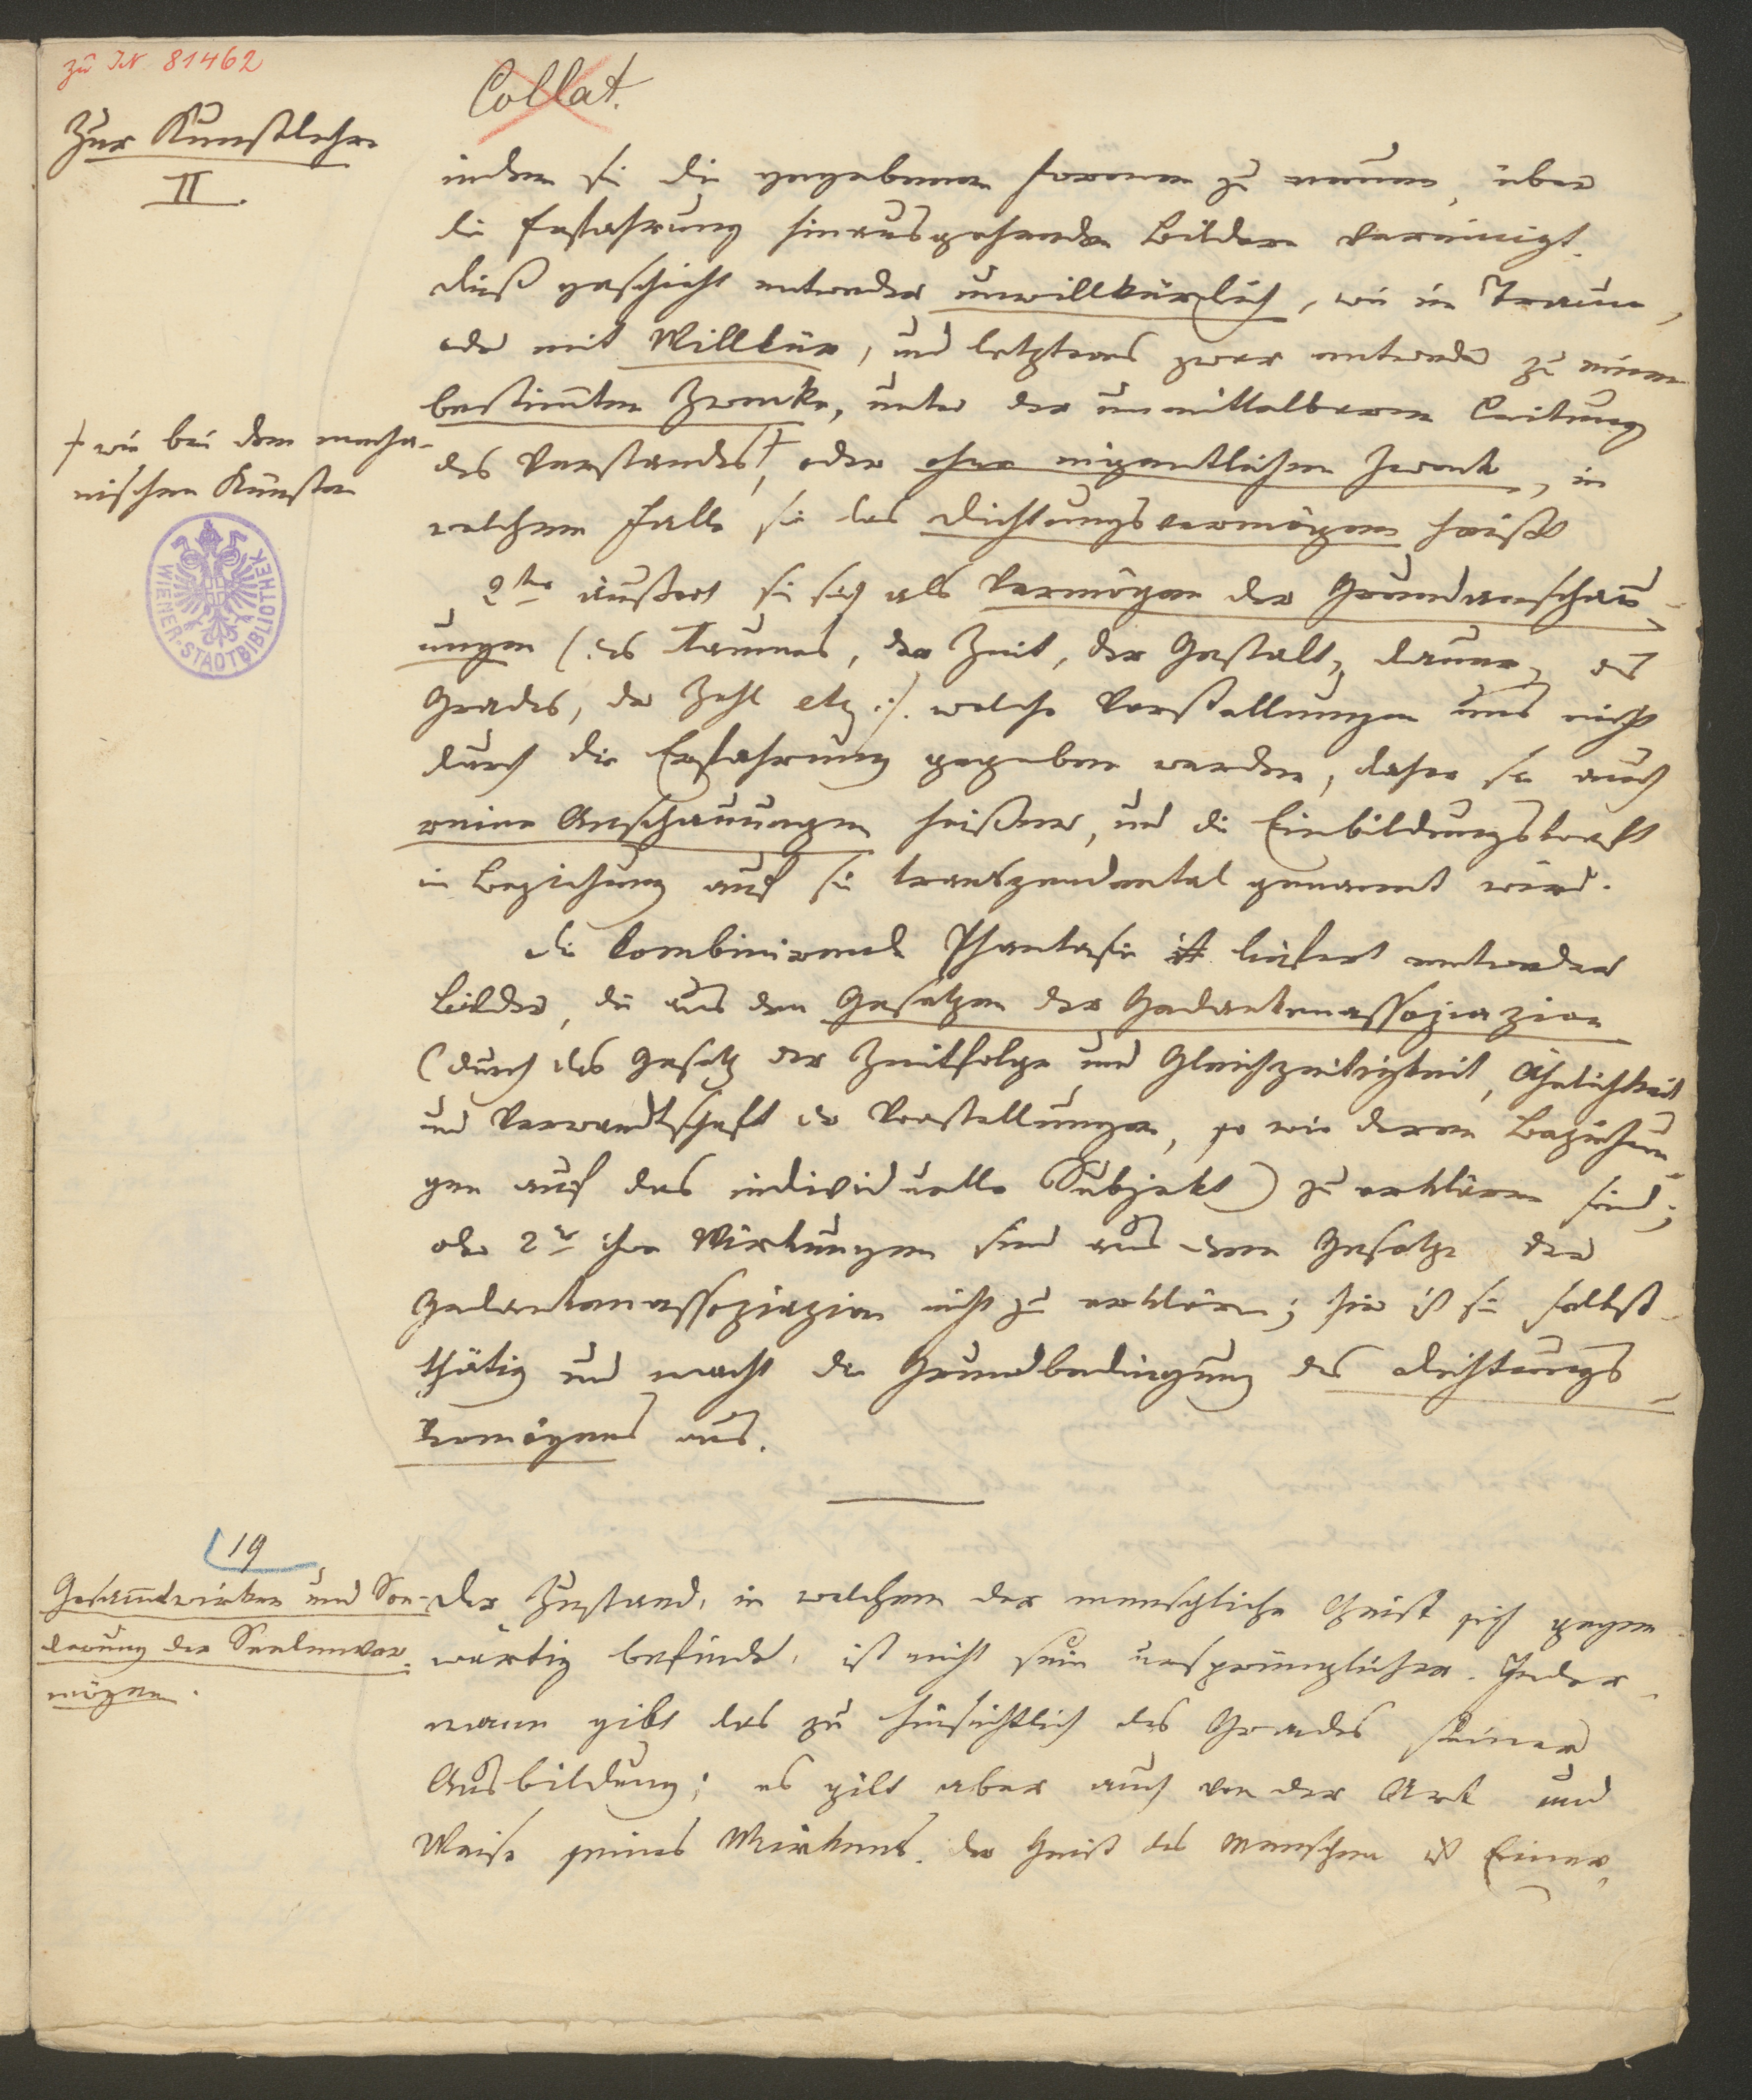 zu IN 81462
Collat.
Zur Kunstlehre
II.
indem sie die gegebenen Formen zu neuen, über
die Erfahrung hinausgehenden Bildern vereinigt.
Dieß geschieht entweder unwillkürlich, wie im Traume,
oder mit Willkür, und letzteres zwar entweder zu einem
bestimmten Zwecke, unter der unmittelbaren Leitung
des Verstandes†, oder ohne eigentlichen Zweck, in
† wie bei den mecha-
nischen Künsten
welchem Falle sie das Dichtungsvermögen heißt
2tens äußert sie sich als Vermögen der Grundanschau-
ungen (des Raumes, der Zeit, der Gestalt, Dauer, des
Grades, der Zahl etz.:). welche Vorstellungen uns nicht
durch die Erfahrung gegeben werden, daher sie auch
reine Anschauungen heißen, und die Einbildungskraft
in Beziehung auf sie transzendental genannt wird.
WIENER-STADTBIBLIOTHEK
Die kombinirende Phantasie liefert entweder
Bilder, die aus den Gesetzen der Gedankenassoziazion
(durch das Gesetz der Zeitfolge und Gleichzeitigkeit, Ähnlichkeit
und Verwandtschaft der Vorstellungen, so wie deren Beziehun-
gen auf das individuelle Subjekt) zu erklären sind;
oder 2tens ihre Wirkungen sind aus dem Gesetze der
Gedankenassoziazion nicht zu erklären; hier ist sie selbst-
thätig und macht die Grundbedingung des Dichtungs-
vermögens aus.
19
Gesammtwirken und Son-
derung der Seelenver-
mögen.
Der Zustand, in welchem der menschliche Geist sich gegen-
wärtig befindet, ist nicht sein ursprünglicher. Jeder-
mann gibt das zu hinsichtlich des Grades seiner
Ausbildung; es gilt aber auch von der Art und
Weise seines Wirkens. Der Geist des Menschen ist Einer,